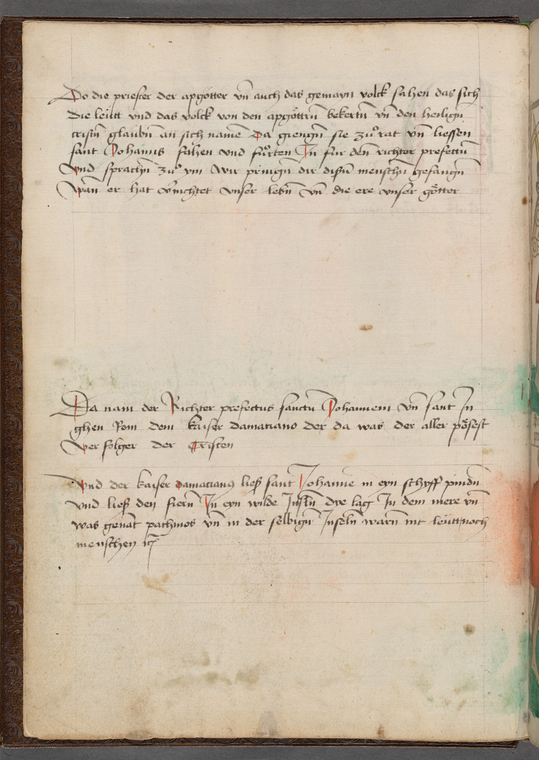 Do die priester der apgotter vn̄ auch das gemayn volck sahen das sich
die leütt vnd das volck von den apgöttrn̄ bekertn̄ vn̄ den heilign̄
cristn̄ glaubn̄ an sich namē Da giengn̄ sie zu rat vn̄ liessen
sant Johannis fahen vnd fürten Jn für den richter prefectū
Vnd sprachn̄ zu ym Wir pringn̄ dir disn̄ menschn̄ gefangn̄
Wan̄ er hat v̄nichtet vnser lebn̄ vn̄ die ere vnser götter
Da nam der Richter prefectus sanctū Johannem vn̄ sant Jn
ghen Rom dem kaiser damaciano der da was der aller pösest
Ver folger der Cristen
Vnd der kaiser damacianus ließ sant Johanne in eyn schyff pindn̄
vnd ließ den fiern̄ Jn eyn wilde Jnseln̄ dye lag Jn dem mere vn̄
was genāt pathmos vn̄ in der selbign̄ Jnseln̄ warn̄ nit leütt noch
menschen